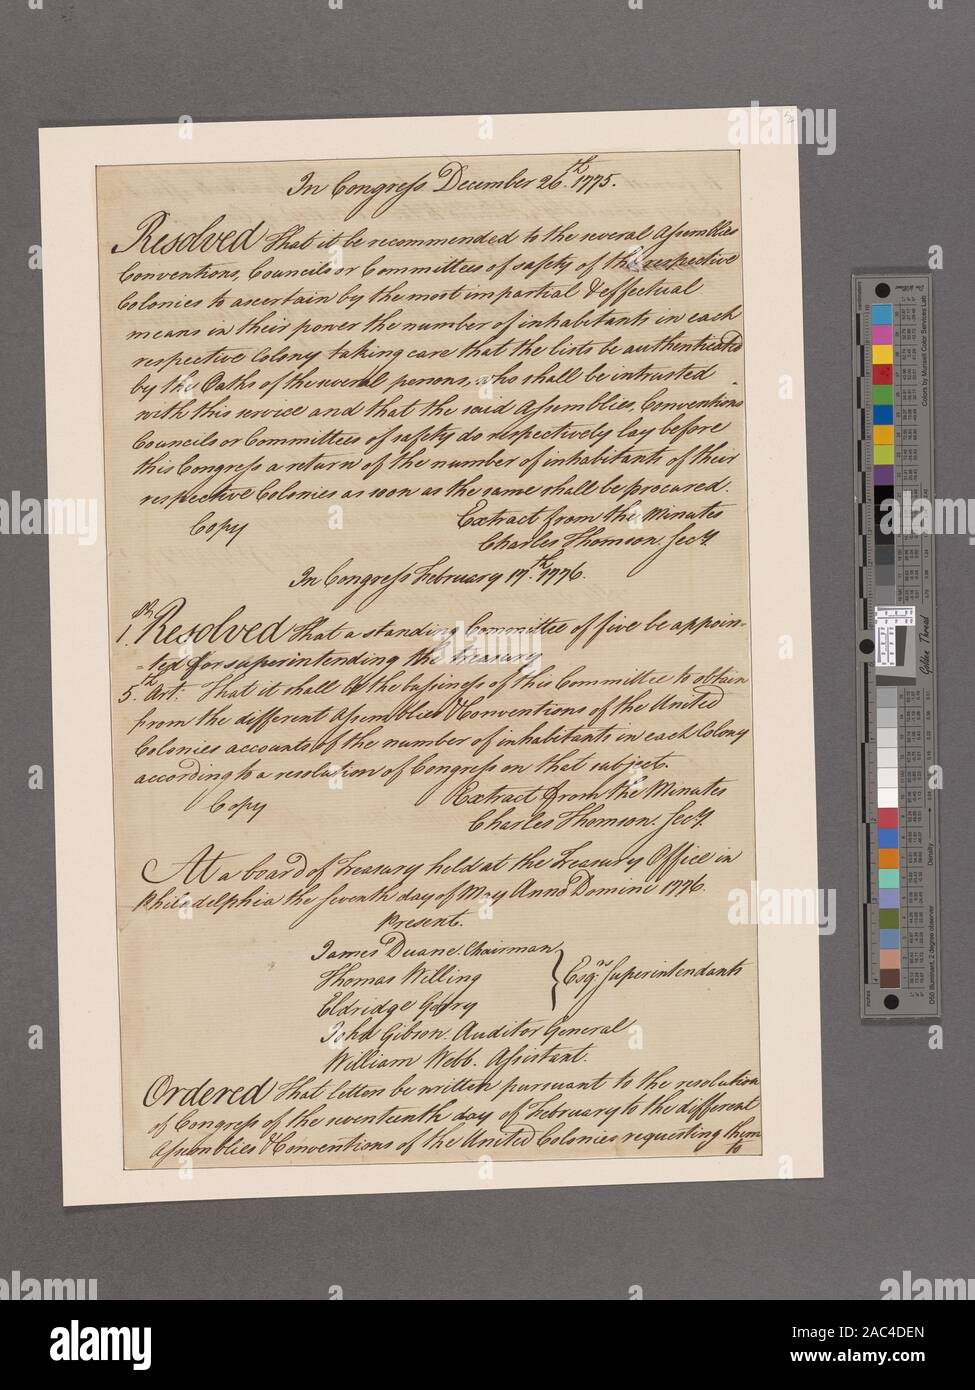 In Congress December 26.th 1775.
Resolved That it be recommended to the several Assemblies
Conventions, Councils or Committees of safety of the respective
Colonies to ascertain by the most impartial & effectual
means in their power the number of inhabitants in each
respective Colony taking care that the lists be authenticated
by the Oaths of the several persons, who shall be intrusted
with this service and that the said Assemblies, Conventions
Councils or Committees of safety do respectively lay before
this Congress a return of the number of inhabitants of their
respective Colonies as soon as the same shall be procured.
Copy Extract from the Minutes
Charles Thomson. Secy.
In Congress February 17.th 1776.
1.st Resolved That a standing Committee of five be appoin-
-ted for superintending the treasury
5.th Art: That it shall be the bussiness of this Committee to obtain
from the different Assemblies & Conventions of the United
Colonies accounts of the number of inhabitants in each Colony
according to a resolution of Congress on that subject.
Copy Extract from the Minutes
Charles Thomson. Secy.
At a board of Treasury held at the Treasury Office in
Philadelphia the seventh day of May Anno Domini 1776.
Present.
James Duane. Chairman
Thomas Willing } Esqrs. Superintendants
Eldridge Gerry
John Gibson. Auditor General
William Webb. Assistant.
Ordered That letters be written pursuant to the resolution
of Congress of the seventeenth day of February to the different
Assemblies & Conventions of the United Colonies requesting them
to
Colors by Munsell Color Services Lab
Golden Thread
Density
D50 Illuminant, 2 degree observer
inches
alamy
a
Image ID: 2AC4DEN
www.alamy.com